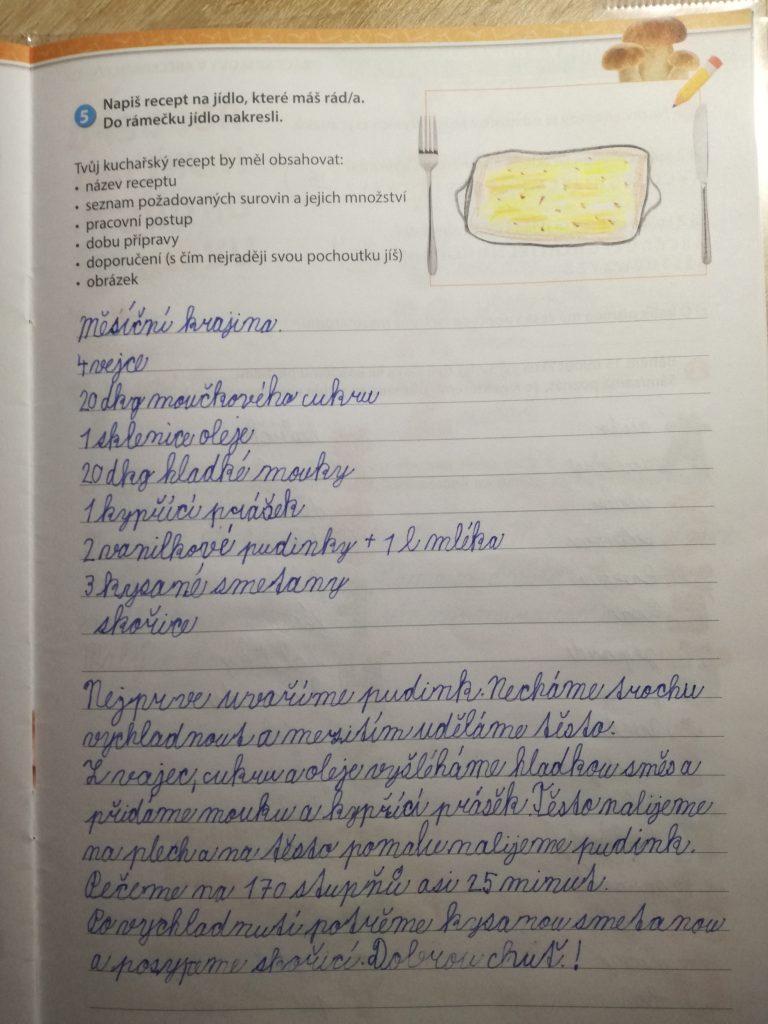 5 Napiš recept na jídlo, které máš rád/a.
Do rámečku jídlo nakresli.
Tvůj kuchařský recept by měl obsahovat:
• název receptu
• seznam požadovaných surovin a jejich množství
• pracovní postup
• dobu přípravy
• doporučení (s čím nejraději svou pochoutku jíš)
• obrázek
Měsíční krajina.
4 vejce
20 dkg moučkového cukru
1 sklenice oleje
20 dkg hladké mouky
1 kypřící prášek
2 vanilkové pudinky + 1 l mléka
3 kysané smetany
skořice
Nejprve uvaříme pudink. Necháme trochu
vychladnout a mezitím uděláme těsto.
Z vajec, cukru a oleje vyšleháme hladkou směs a
přidáme mouku a kypřící prášek. Těsto nalijeme
na plech a na těsto pomalu nalijeme pudink.
Pečeme na 170 stupňů asi 25 minut.
Po vychladnutí potřeme kysanou smetanou
a posypeme skořicí. Dobrou chuť.!